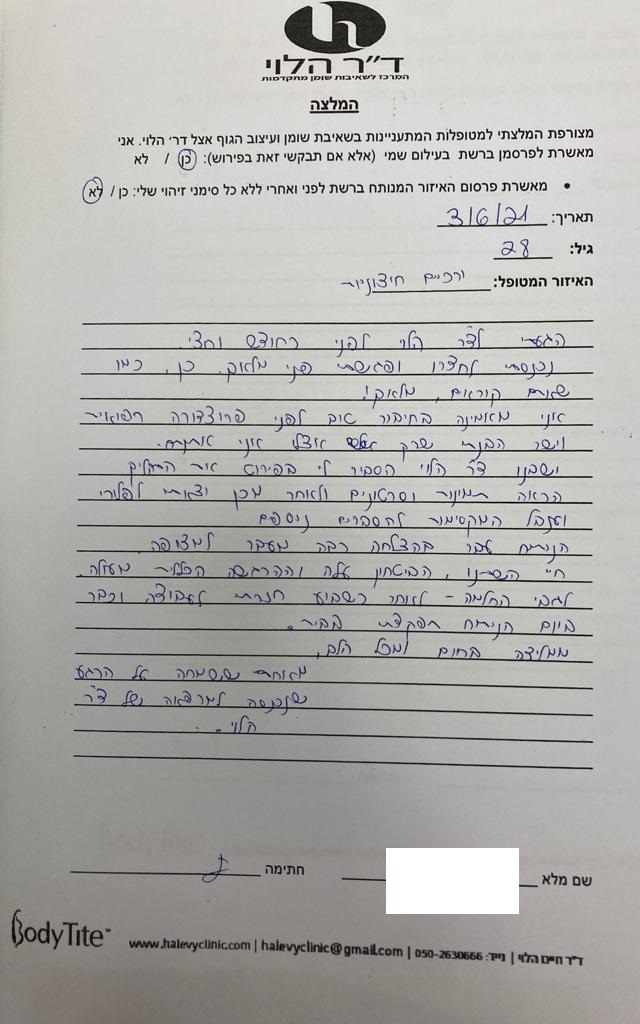 ד"ר הלוי
המרכז לשאיבות שומן מתקדמות
המלצה
מצורפת המלצתי למטופלות המתעניינות בשאיבת שומן ועיצוב הגוף אצל דר׳ הלוי. אני
מאשרת לפרסמן ברשת בעילום שמי (אלא אם תבקשי זאת בפירוש): כן / לא
• מאשרת פרסום האיזור המנותח ברשת לפני ואחרי ללא כל סימני זיהוי שלי: כן / לא
תאריך: 3/6/21
גיל: 28
האיזור המטופל: ירכיים חיצוניות
הגעתי לדר הלוי לפני כחודש וחצי.
נכנסתי לחדרו ופגשתי פני מלאך. כן, כמו
שאתם קוראים, מלאך!
אני מאמינה בחיבור טוב לפני פרוצדורה רפואית
וישר הבנתי שרק אצלו אני אנתח.
ישבנו דר הלוי הסביר לי בפירוט את התהליך
הראה תמונות וסרטונים ולאחר מכן יצאתי לפלורי
וקיבלתי הסברים נוספים
הניתוח עבר בהצלחה רבה מעבר למצופה
חיי השתנו, הביטחון עלה וההרגשה הכללית מעולה.
לגבי החלמה - לאחר כשבוע חזרתי לעבודה וכבר
ביום הניתוח תפקדתי בבית.
ממליצה בחום ומכל הלב,
מאוחת שמשמחה על הרגע
שנכנסה למרפאה של דר
הלוי.
שם מלא
חתימה
BodyTite™
ד"ר חיים הלוי | נייד: 050-2630666 | halevyclinic@gmail.com | www.halevyclinic.com